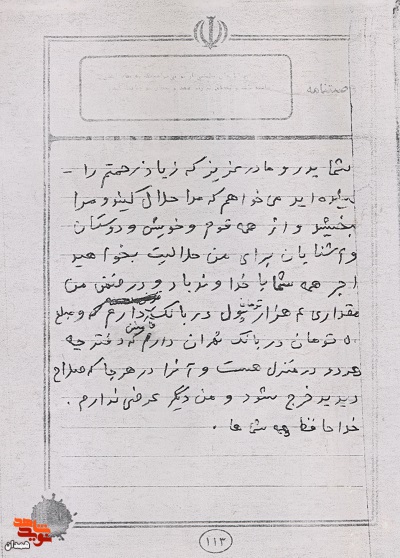 وصیتنامه
شما پدر و مادر عزیز که زیاد زحمتم را –
کشیده اید می خواهم که مرا حلال کنید و مرا
ببخشید و از همه قوم و خویش و دوستان
و آشنایان برای من حلالیت بخواهید
اجر همه شما با خدا و زیاد و در ضمن من
مقداری ۴ هزار تومان پول در بانک دارم که و مبلغ
۵۰ تومان در بانک تهران دارم که دفترچه
هردو در منزل هست و آنرا در هر جا که صلاح
دیدید خرج شود و من دیگر عرضی ندارم.
خدا حافظ همه شما ها.
۱۱۳
نوید شاهد
همدان